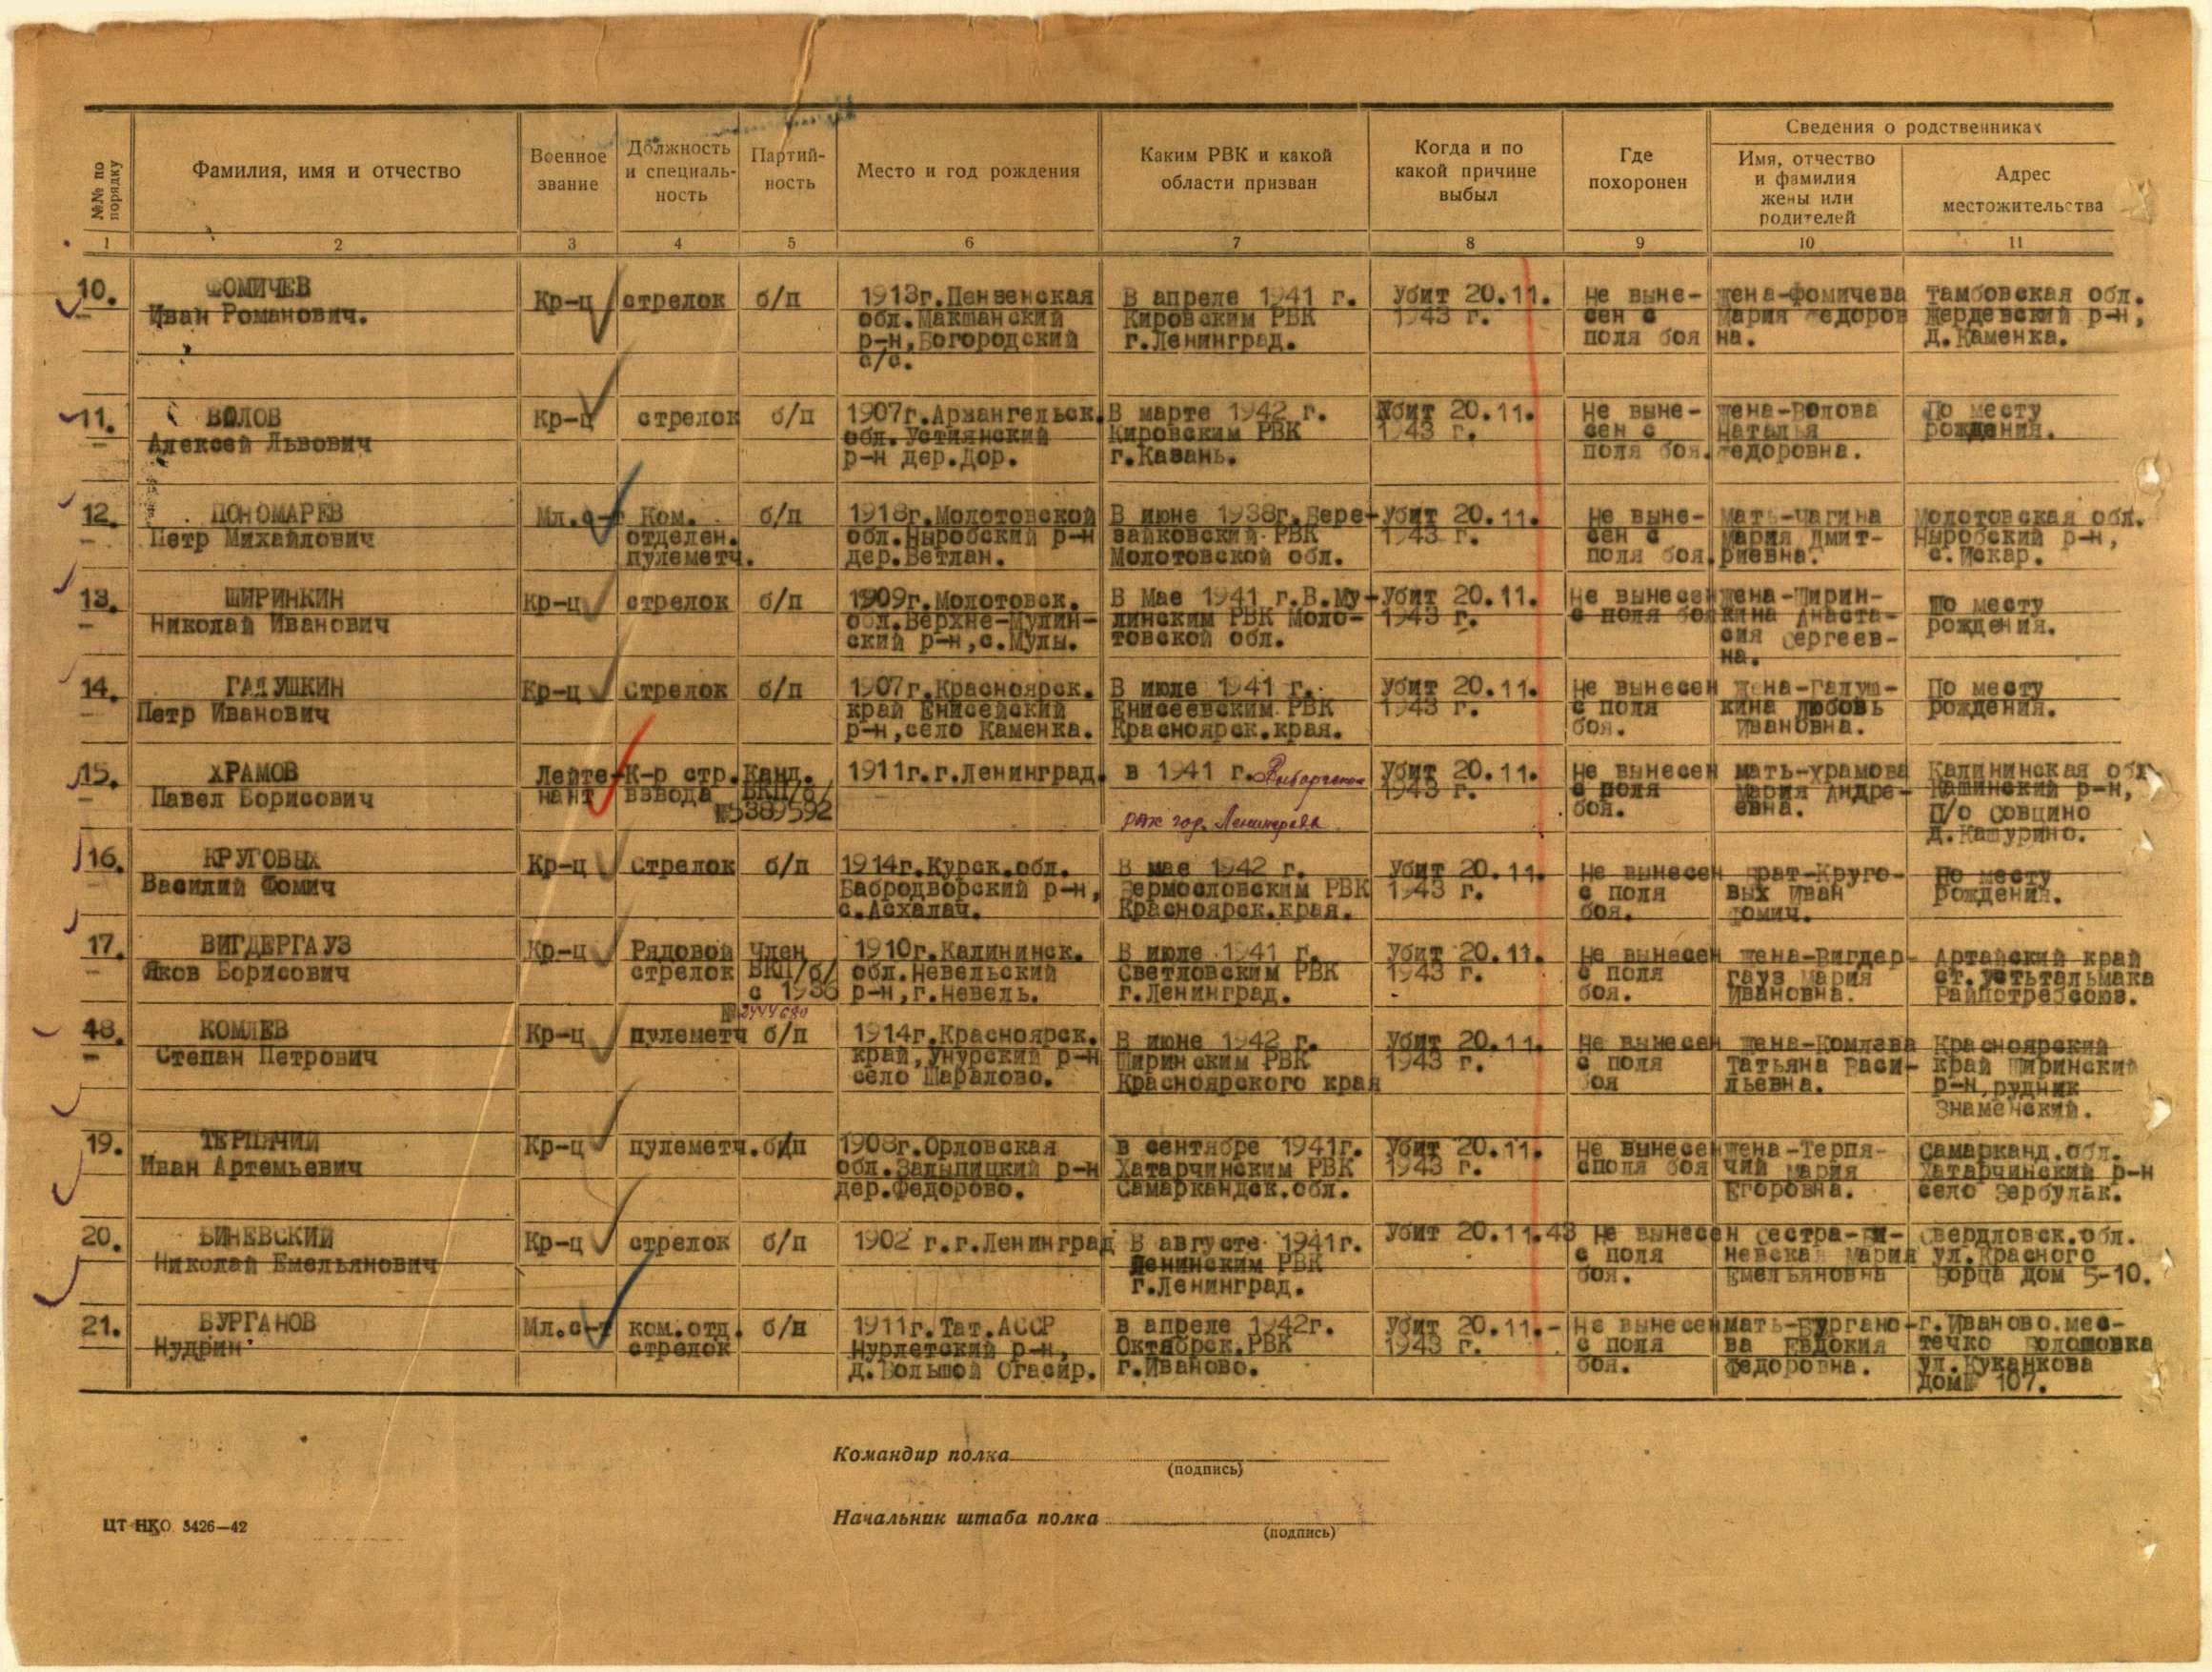 №№ по порядку
Фамилия, имя и отчество
Военное звание
Должность и специаль-ность
Партий-ность
Место и год рождения
Каким РВК и какой области призван
Когда и по какой причине выбыл
Где похоронен
Сведения о родственниках
Имя, отчество и фамилия жены или родителей
Адрес местожительства
1 2 3 4 5 6 7 8 9 10 11
10. ФОМИЧЕВ Кр-ц стрелок б/п 1913г.Пензенская В апреле 1941 г. Убит 20.11. Не выне- жена-Фомичева Тамбовская обл.
Иван Романович. обл.Макшанский Кировским РВК 1943 г. сен с Мария Федоров Жердевский р-н,
р-н,Богородский г.Ленинград. поля боя на. д.Каменка.
с/с.
11. ВОЛОВ Кр-ц стрелок б/п 1907г.Архангельск. В марте 1942 г. Убит 20.11. Не выне- жена-Волова По месту
Алексей Львович обл.Устиянский Кировским РВК 1943 г. сен с Наталья рождения.
р-н дер.Дор. г.Казань. поля боя. Федоровна.
12. ПОНОМАРЕВ Мл.с-т Ком. б/п 1918г.Молотовской В июне 1938г.Вере- Убит 20.11. Не выне- мать-Чагина Молотовская обл.
Петр Михайлович отделен. обл.Ныробский р-н вайковский РВК 1943 г. сен с Мария Дмит- Ныробский р-н,
пулеметч. дер.Ветлан. Молотовской обл. поля боя. риевна. с.Искар.
13. ШИРИНКИН Кр-ц стрелок б/п 1909г.Молотовск. В Мае 1941 г.В.Му- Убит 20.11. Не вынесен жена-Ширин- По месту
Николай Иванович обл.Верхне-Мулин- линским РВК Моло- 1943 г. с поля боя кина Анаста- рождения.
ский р-н,с.Мулы. товской обл. сия Сергеев-
на.
14. ГАЛУШКИН Кр-ц Стрелок б/п 1907г.Красноярск. В июле 1941 г. Убит 20.11. Не вынесен жена-Галуш- По месту
Петр Иванович край Енисейский Енисеевским РВК 1943 г. с поля кина Любовь рождения.
р-н,село Каменка. Красноярск.края. боя. Ивановна.
15. ХРАМОВ Лейте- К-р стр. Канд. 1911г.г.Ленинград. в 1941 г. Выборгским Убит 20.11. Не вынесен мать-Храмова Калининская обл
Павел Борисович нант взвода ВКП/б/ 1943 г. с поля Мария Андре- Кашинский р-н,
№5389592 рвк гор. Ленинграда боя. евна. П/о Совцино
д.Кашурино.
16. КРУГОВЫХ Кр-ц Стрелок б/п 1914г.Курск.обл. В мае 1942 г. Убит 20.11. Не вынесен брат-Круго- По месту
Василий Фомич Бабродворский р-н, РВК 1943 г. с поля вых Иван рождения.
с.Асхалач. Красноярск.края. боя. Фомич.
17. ВИГДЕРГАУЗ Кр-ц Рядовой Член 1910г.Калининск. В июле 1941 г. Убит 20.11. Не вынесен жена-Вигдер- Артайский край
Яков Борисович стрелок ВКП/б/ обл.Невельский Светловским РВК 1943 г. с поля гауз Мария
с 1936 р-н,г.Невель. г.Ленинград. боя. Ивановна. Райпотребсоюз.
№2444680
48. КОМЛЕВ Кр-ц пулеметч б/п 1914г.Красноярск. В июне 1942 г. Убит 20.11. Не вынесен жена-Комлева Красноярский
Степан Петрович край,Унурский р-н Ширинским РВК 1943 г. с поля Татьяна Васи- край Ширинский
село Шаралово. Красноярского края боя льевна. р-н,рудник
Знаменский.
19. ТЕРПЯЧИЙ Кр-ц пулеметч. б/п 1908г.Орловская в сентябре 1941г. Убит 20.11. Не вынесен жена-Терпя- Самарканд.обл.
Иван Артемьевич обл.Залыпицкий р-н Хатарчинским РВК 1943 г. споля боя чий Мария Хатарчинский р-н
дер.Федорово. Самаркандск.обл. Егоровна. село Зербулак.
20. БИНЕВСКИЙ Кр-ц стрелок б/п 1902 г.г.Ленинград В августе 1941г. Убит 20.11.43 Не вынесен сестра-Би- Свердловск.обл.
Николай Емельянович Ленинским РВК с поля невская Мария ул.Красного
г.Ленинград. боя. Емельяновна Борца дом 5-10.
21. БУРГАНОВ Мл.с-т ком.отд. б/п 1911г.Тат.АССР в апреле 1942г. Убит 20.11.- Не вынесен мать-Бургано- г.Иваново.мес-
Нудрин стрелок Нурлетский р-н, Октябрск.РВК 1943 г. с поля ва Евдокия течко Голошовка
д.Большой Огасир. г.Иваново. боя. Федоровна. ул.Куканкова
дом№ 107.
Командир полка
(подпись)
Начальник штаба полка
(подпись)
ЦТ НКО 5426—42